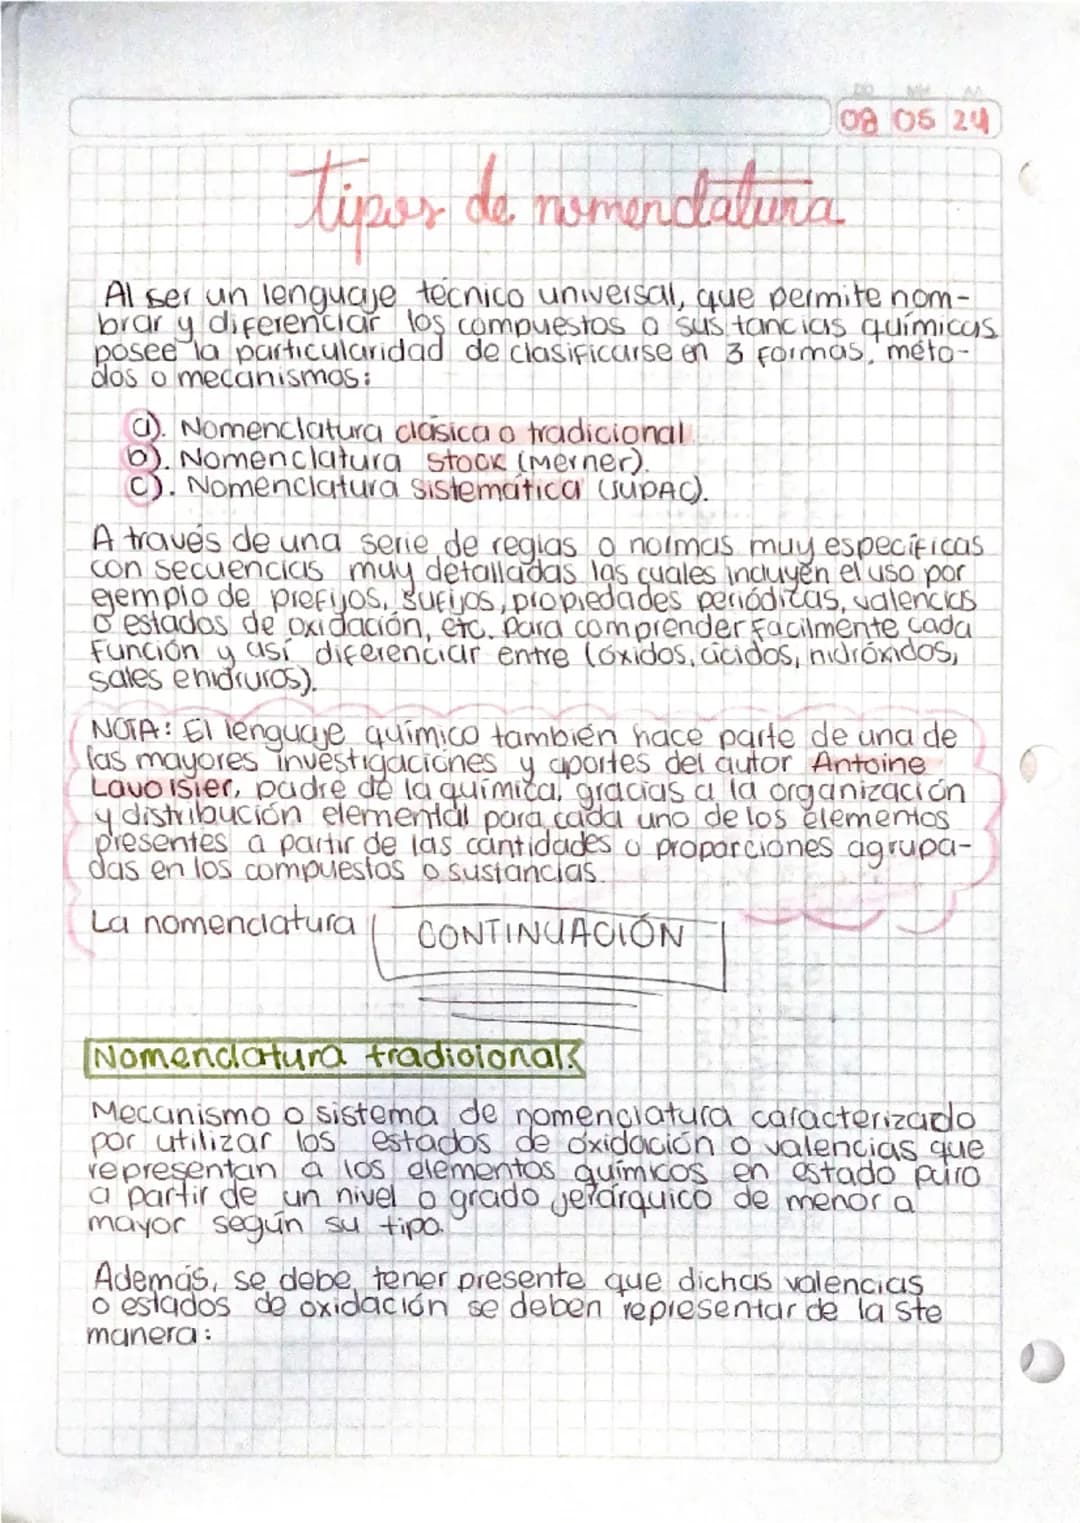 DD MM AA
08 05 24
tipos de nomenclatura
Al ser un lenguaje técnico universal, que permite nom-
brar y diferenciar los compuestos o sustancias químicas
posee la particularidad de clasificarse en 3 formas, méto-
dos o mecanismos:
a). Nomenclatura clásica o tradicional
b). Nomenclatura Stock (Merner).
c). Nomenclatura Sistemática (IUPAC).
A través de una serie de reglas o normas muy específicas
con secuencias muy detalladas las cuales incluyen el uso por
ejemplo de prefijos, sufijos, propiedades periódicas, valencias
o estados de oxidación, etc. para comprender facilmente cada
función y así diferenciar entre (óxidos, ácidos, hidróxidos,
sales e hidruros).
NOTA: El lenguaje químico también hace parte de una de
las mayores investigaciones y aportes del autor Antoine
Lavoisier, padre de la química, gracias a la organización
y distribución elemental para cada uno de los elementos
presentes a partir de las cantidades o proporciones agrupa-
das en los compuestos o sustancias.
La nomenclatura CONTINUACIÓN
Nomenclatura tradicional:
Mecanismo o sistema de nomenclatura caracterizado
por utilizar los estados de oxidación o valencias que
representan a los elementos químicos en estado puro
a partir de un nivel o grado jerárquico de menor a
mayor según su tipo.
Además, se debe tener presente que dichas valencias
o estados de oxidación se deben representar de la ste
manera: